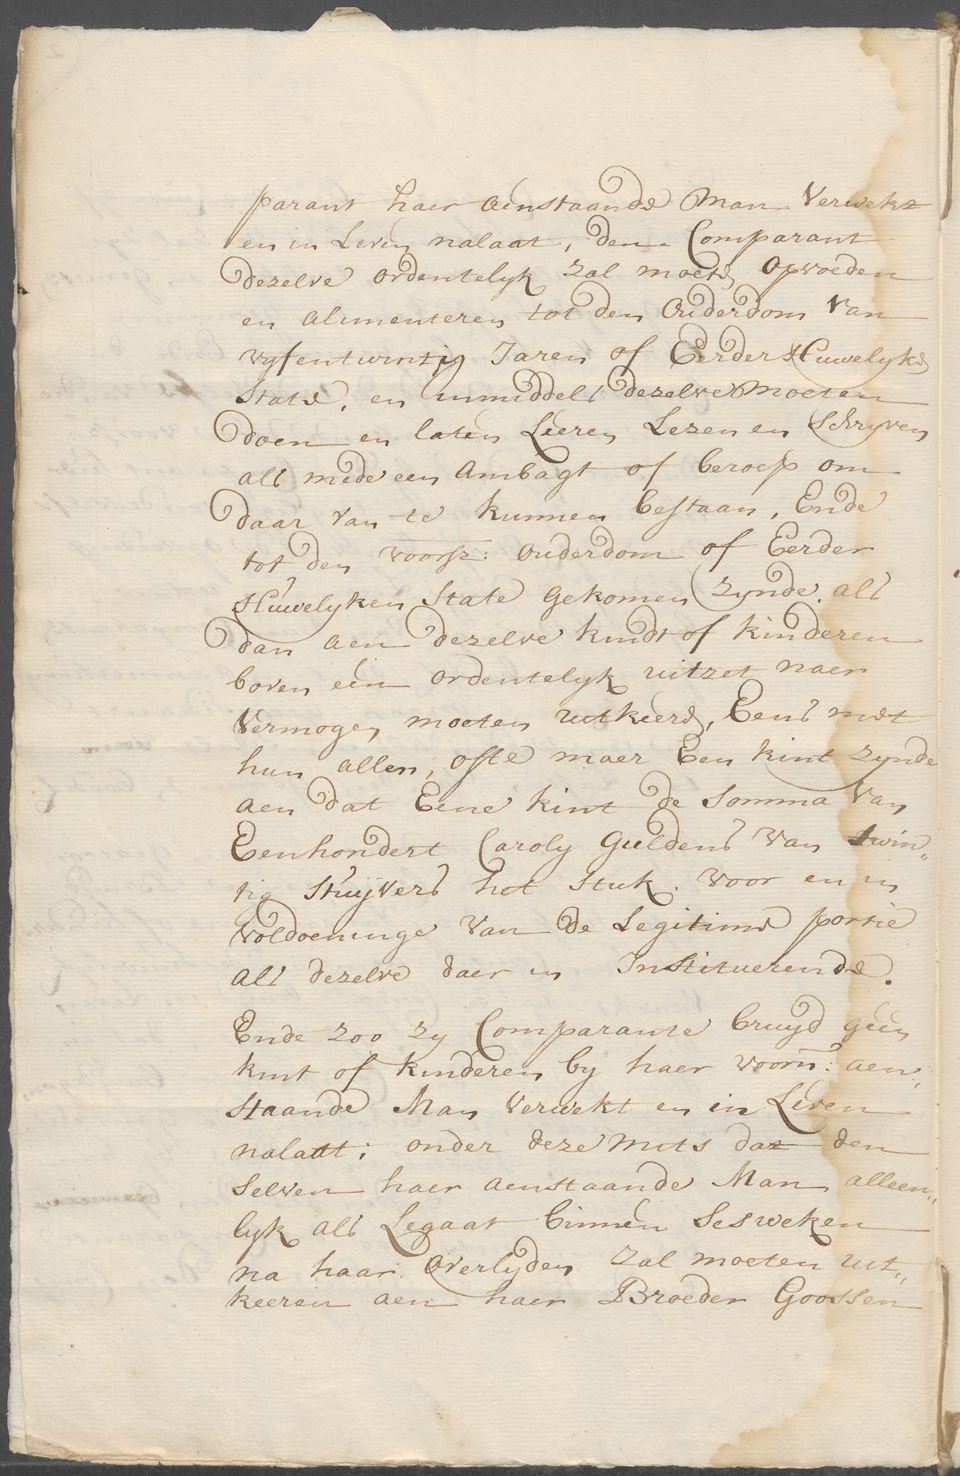 parant haer aenstaande Man Verwekt
en in Leven nalaat, den Comparant
dezelve ordentelyk zal moete opvoeden
en alimenteren tot den Ouderdom Van
vyfentwintig Jaren of Eerder Huwelyke
State, en inmiddels dezelve Moeten
doen en laten Leeren Lezen en Schryven
als mede een Ambagt of beroep om
daar van te kunnen bestaan, Ende
tot den voorsz: Ouderdom of Eerder
Huwelyken State gekomen zynde. als
dan aen dezelve kindt of kinderen
boven een ordentelyk uitzet naer
Vermogen moeten uitkeere, Eens met
hun allen, ofte maer Een kint zynde
aen dat Eene kint de Somma Van
Eenhondert Caroly Guldens Van twin„
tig Stuyvers het Stuk. voor en in
voldoeninge Van de Legitime portie
als dezelve daer in Instituerende.
Ende zoo zy Comparante bruyd geen
kint of kinderen by haer voorn: aen„
staande Man Verwekt en in Leven
nalaat; onder deze Mits dat den
selven haer aenstaande Man alleen„
lyk als Legaat binnen Sesweken
na haar Overlyden zal moeten uit„
keeren aen haer Broeder Goossen